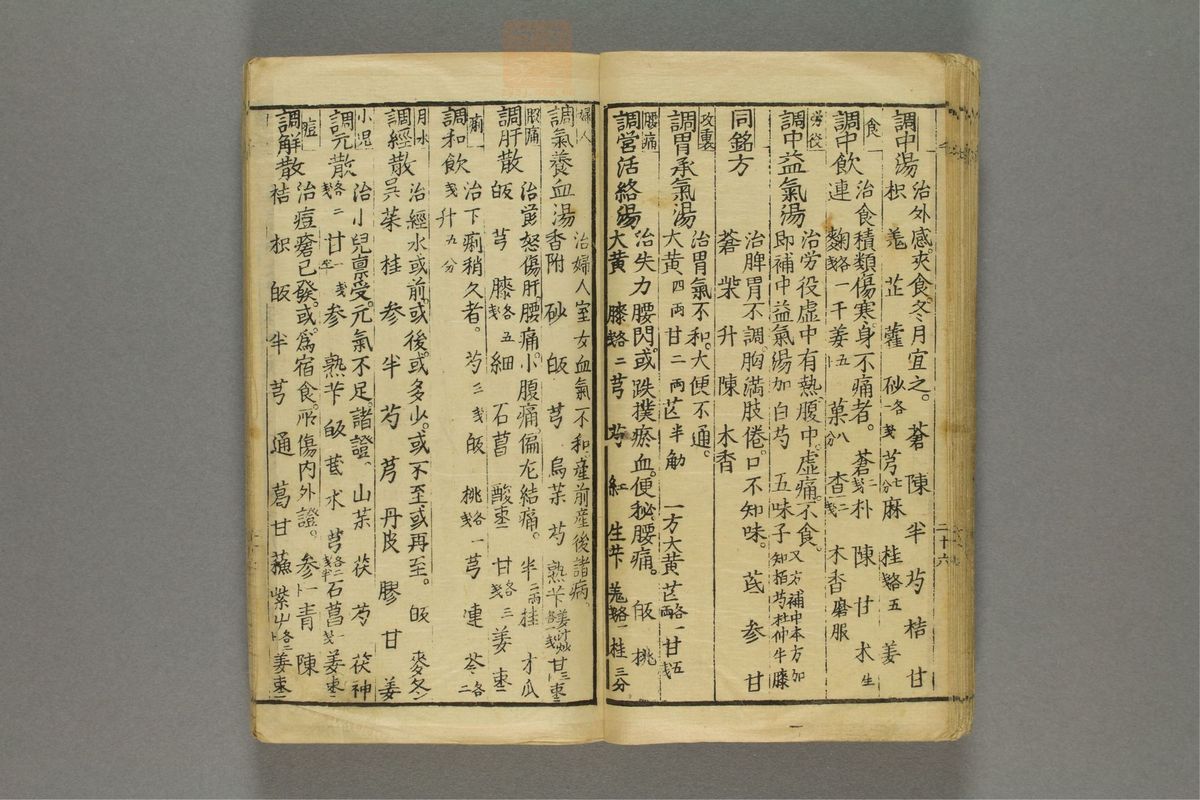 調中湯 治外感夾食。冬月宜之。 蒼 陳 半 芍 桔 甘
枳 羗 芷 藿 砂 各一戔 芎 七分 麻 桂 各五 姜
食
調中飲 治食積類傷寒。身不痛者。 蒼 二戔 朴 陳 甘 朮 生
連 麴 各一戔 千姜 五卜 菓 八分 査 二戔 木香 磨服
二十六
勞役
調中益氣湯 治労役虚中有熱。腹中虚痛。不食。 又方補中本方加
即補中益氣湯加 白芍 五味子 知栢芍杜仲牛膝
同銘方 治脾胃不調。胸満肢倦。口不知味。 芪 参 甘
蒼 柴 升 陳 木香
攻裏
調胃承氣湯 治胃氣不和。大便不通。
大黄 四両 甘 二両 芒 半觔 一方大黄芒 各一両 甘 五戔
腰痛
調営活絡湯 治失力腰閃。或跌撲瘀血。便秘腰痛。 皈 桃
大黄 膝 各二戔 芎 芍 紅 生芐 羗 各一戔 桂 三分
婦人
調氣養血湯 治婦人室女血氣不和。産前産後諸病
香附 砂 皈 芎 烏茱 芍 熟芐 姜汁炒 各一戔 甘 三 棗 二
腰痛
調肝散 治鬱怒傷肝腰痛。小腹痛。偏尤結痛。 半 二両 桂 才 瓜
皈 芎 膝 各五戔 細 石菖 酸棗 甘 各三戔 姜 棗 二
痢
調和飲 治下痢稍久者。 芍 三戔 皈 桃 各一戔 芎 連 苓 各二戔
升 九分
月水
調經散 治經水或前。或後。或多少。或不至或再至。 皈 麥冬 二
呉茱 桂 参 半 芍 芎 丹皮 膠 甘 姜
小児
調元散 治小兒禀受。元氣不足。諸證。 山茱 茯 芍 茯神
各二戔 甘 一戔半 参 熟芐 皈 茋 水 芎 各二戔半 石菖 一戔 姜 棗 二
痘
調解散 治痘瘡已發。或爲宿食。所傷内外證。 参 一卜 青 陳
桔 枳 皈 半 芎 通 葛 甘 蘓 紫屮 各二 姜 棗 二